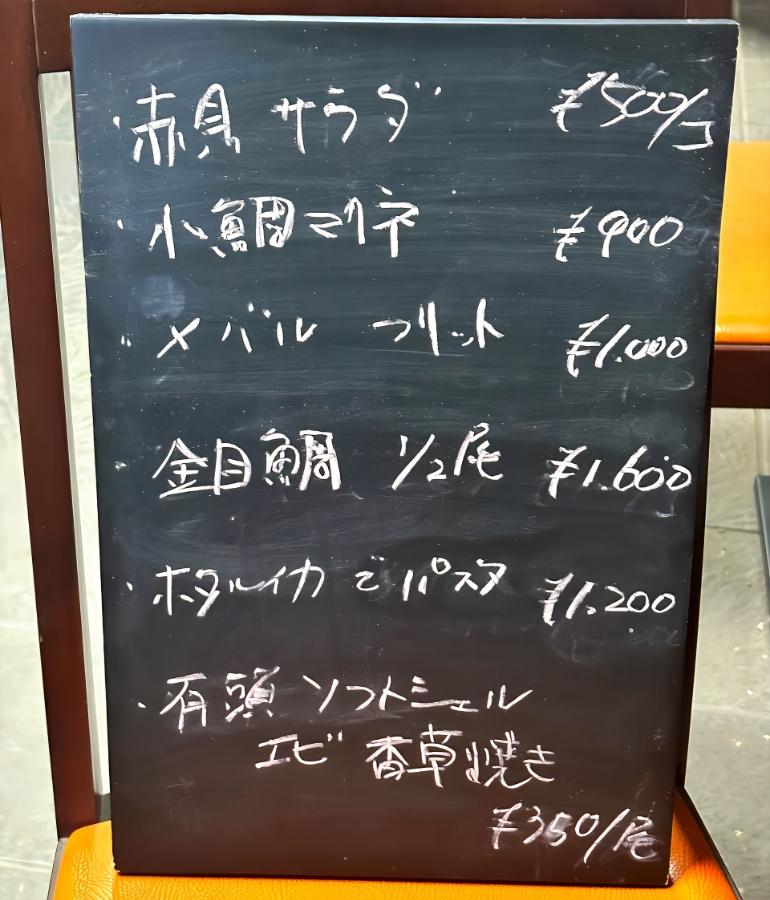 ・赤貝 サラダ ¥500/コ
・小鯛マリネ ¥900
・メバル フリット ¥1.000
・金目鯛 1/2尾 ¥1.600
・ホタルイカ で パスタ ¥1.200
・有頭 ソフトシェル
エビ 香草焼き
¥350/尾